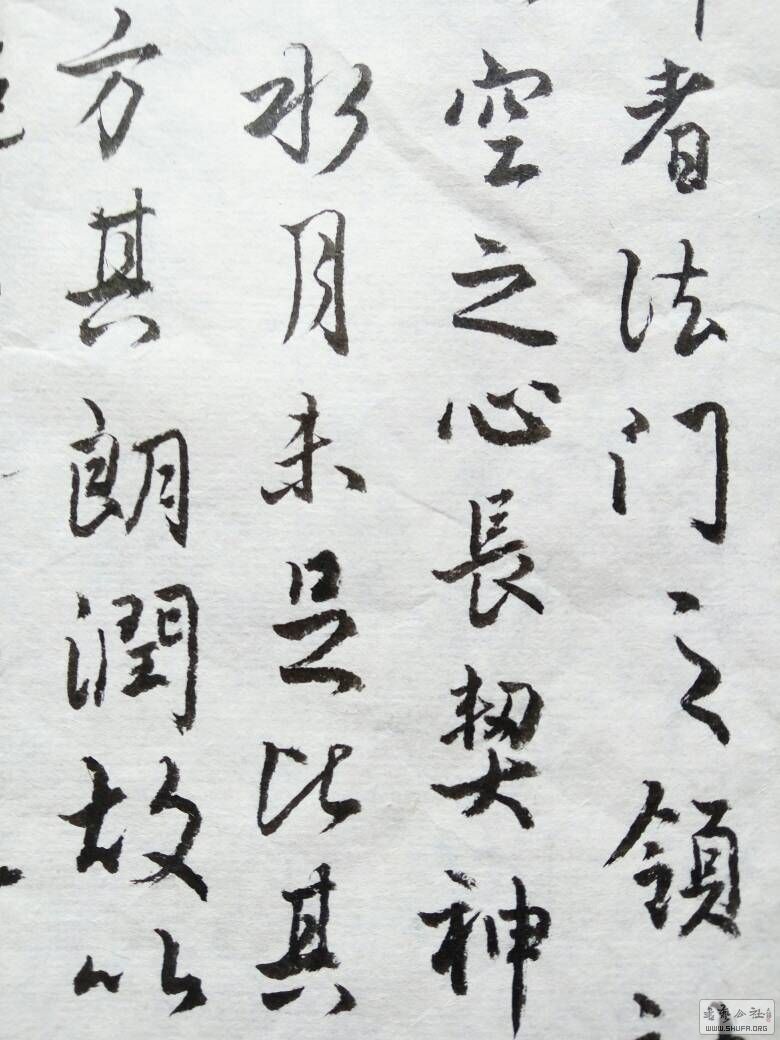 者法门之领
空之心長契神
水月未足比其
方其朗潤故以
書法公社
WWW.SHUFA.ORG